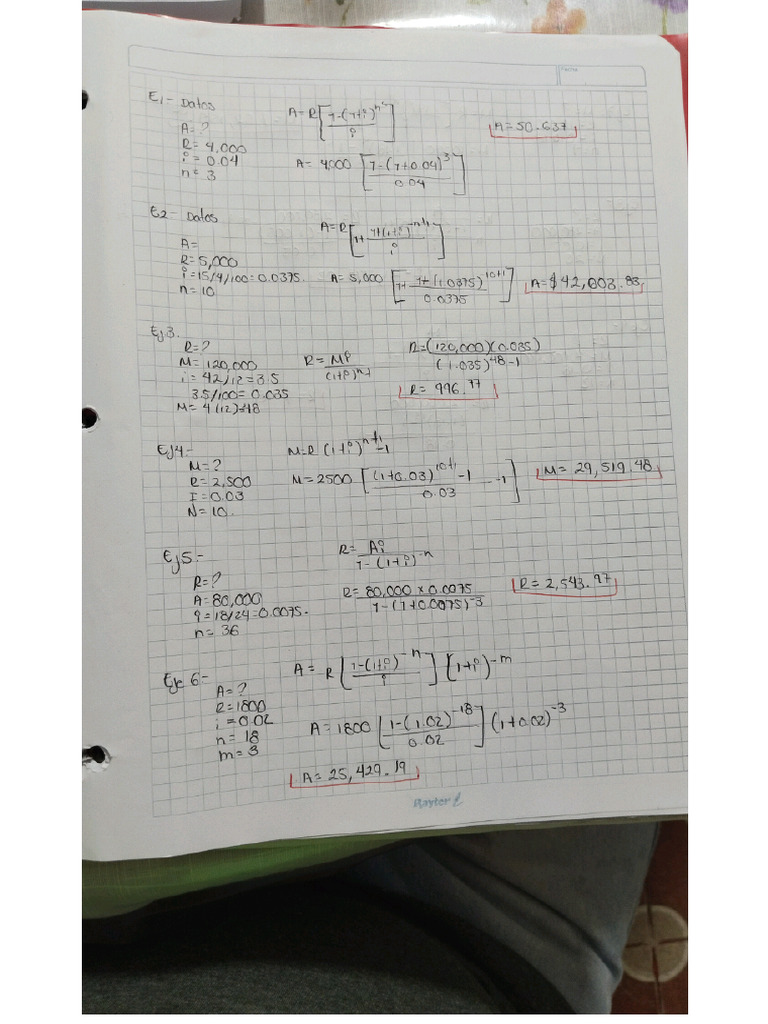 Fecha
E1- Datos
A=?
R= 4,000
i= 0.04
n= 3
A=R[1-(1+i)^n / i]
A= 4,000 [1-(1+0.04)^3 / 0.04]
A=50.637
E2- Datos
A=
R=5,000
i=15/4/100=0.0375.
n=10
A=R[1+ 1+(1+i)^-n+1 / i]
A= 5,000 [1+ 1+(1.0375)^10+1 / 0.0375]
A=$42,003.83
Ej3.
R=?
M=120,000
i= 42/12=3.5
3.5/100= 0.035
M= 4(12)=48
R= Mi / (1+i)^n-1
R=(120,000)(0.035) / (1.035)^48-1
R= 996.77
Ej4.-
M=?
R=2,500
I=0.03
N=10.
M=R (1+i)^n+1 -1
M=2500 [(1+0.03)^10+1 -1 / 0.03 -1]
M= 29,519.48
Ej5.-
R=?
A=80,000
i=18/24=0.0075.
n= 36
R= Ai / 1-(1+i)^-n
R= 80,000 x 0.0075 / 1-(1+0.0075)^-3
R= 2,543.97
Eje 6-
A=?
R=1800
i=0.02
n= 18
m= 3
A= R [1-(1+i)^-n / i] [1+i)^-m
A= 1800 [1-(1.02)^-18 / 0.02] (1+0.02)^-3
A= 25,429.19